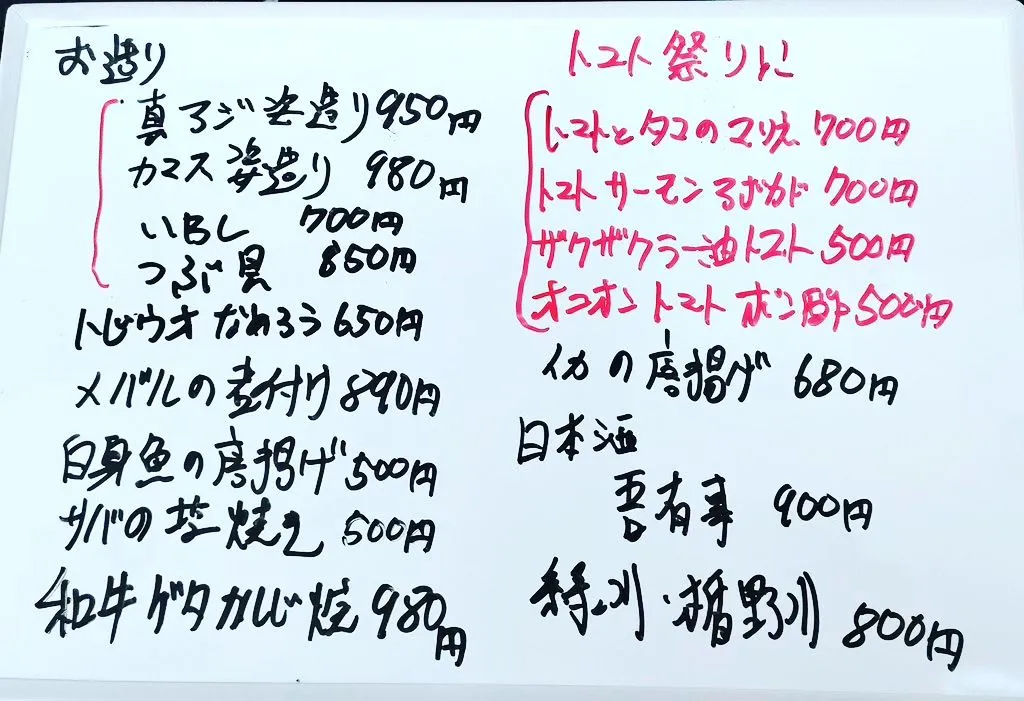 お造り
真アジ姿造り 950円
カマス姿造り 980円
いわし 700円
つぶ貝 850円
トビウオなめろう 650円
メバルの煮付け 890円
白身魚の唐揚げ 500円
サバの塩焼き 500円
和牛ゲタカルビ焼 980円
トマト祭り
トマトとタコのマリネ 700円
トマトサーモンアボカド 700円
ザクザクラー油トマト 500円
オニオントマトポン酢 500円
イカの唐揚げ 680円
日本酒
吾有事 900円
楯野川 800円